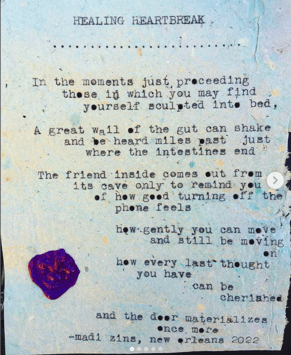 HEALING HEARTBREAK
In the moments just proceeding
those in which you may find
yourself sculpted into bed,
A great wail of the gut can shake
and be heard miles past just
where the intestines end
The friend inside comes out from
its cave only to remind you
of how good turning off the
phone feels
how gently you can move
and still be moving
on
how every last thought
you have
can be
cherished
and the door materializes
once more
-madi zins, new orleans 2022